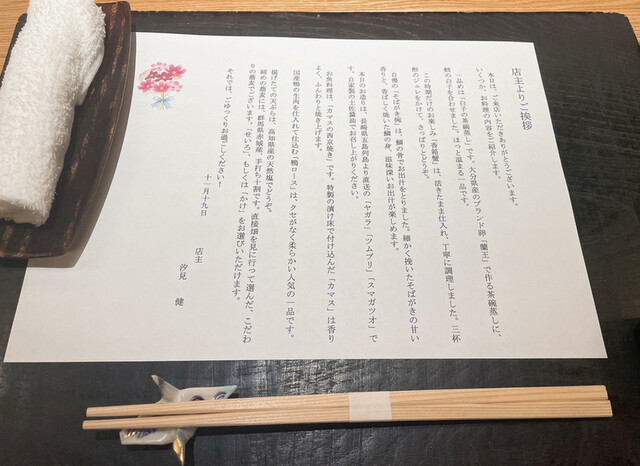 店主よりご挨拶
本日は、ご来店いただきありがとうございます。
いくつか、お料理の内容をご紹介します。
一品めは「白子の茶碗蒸し」です。大分県産のブランド卵「蘭王」で作る茶碗蒸しに、
鱈の白子を合わせました。ほっと温まる一品です。
この時期だけのお楽しみ「香箱蟹」は、活きたまま仕入れ、丁寧に調理しました。三杯
酢のジュレをかけて、さっぱりとどうぞ。
自慢の「そばがき椀」は、鯛の骨でお出汁をとりました。細かく挽いたそばがきの甘い
香りと、香ばしく焼いた鯛の身、滋味深いお出汁が楽しめます。
本日のお造りは、長崎県五島列島より直送の「ヤガラ」「ツムブリ」「スマガツオ」で
す。自家製の土佐醤油でお召し上がりください。
お魚料理は、「カマスの西京焼き」です。特製の漬け床で付け込んだ「カマス」は香り
よく、ふんわりと焼き上げます。
国産鴨の生肉を仕入れて仕込む「鴨ロース」は、クセがなく柔らかい人気の一品です。
揚げたての天ぷらは、高知県産の天然塩でどうぞ。
締めの蕎麦には、群馬県赤城産、手打ち十割です。直接畑を見に行って選んだ、こだわ
りの蕎麦でございます。「せいろ」、もしくは「かけ」をお選びいただけます。
それでは、ごゆっくりお過ごしください！
十一月十九日
店主
汐見　健